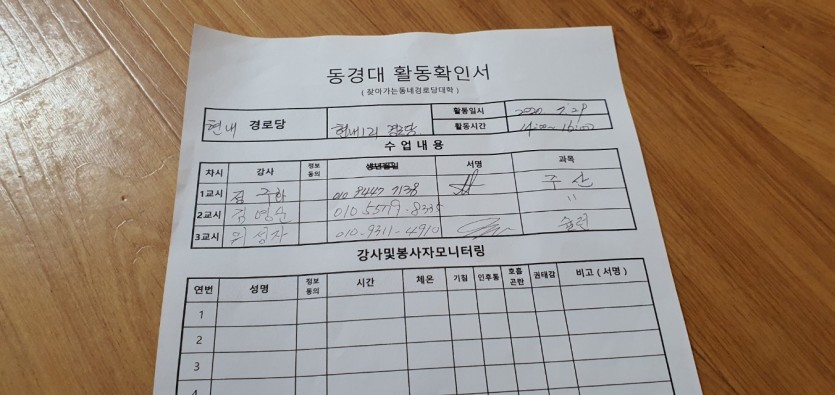 동경대 활동확인서
( 찾아가는동네경로당대학 )
현내 경로당 현내1리 경로당 활동일시 2020 7.29
활동시간 14:00~16:00
수 업 내 용
차시 강사 정보동의 생년월일 서명 과목
1교시 주산
2교시 김영순 010-5579-8335 "
3교시 위성자 010-9311-4910
강사및봉사자모니터링
연번 성명 정보동의 시간 체온 기침 인후통 호흡곤란 권태감 비고 ( 서명 )
1
2
3
4